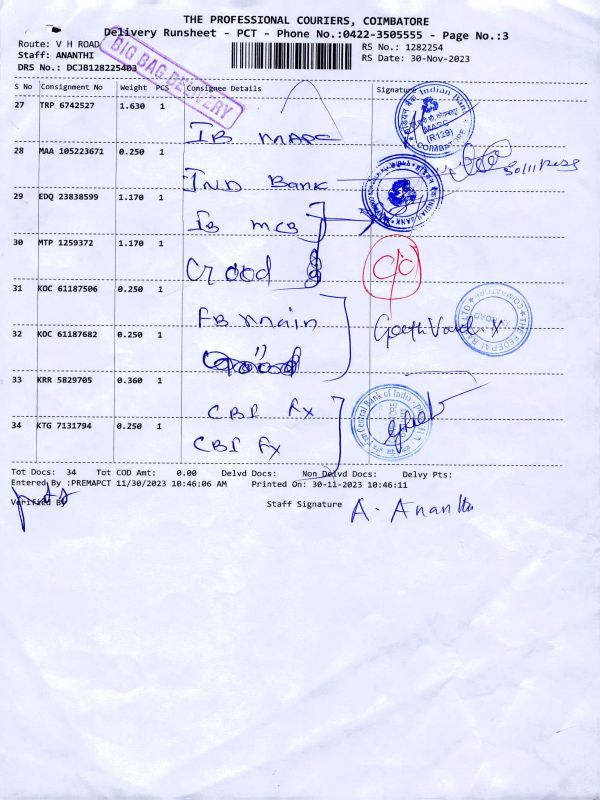 THE PROFESSIONAL COURIERS, COIMBATORE
Delivery Runsheet - PCT - Phone No.:0422-3505555 - Page No.:3
Route: V H ROAD
RS No.: 1282254
Staff: ANANTHI
RS Date: 30-Nov-2023
DRS No.: DCJB128225403
BIG BAG DELIVERY
S No Consignment No Weight PCS Consignee Details Signature
27 TRP 6742527 1.630 1 IB MARG
Indian Bank
MARG
(R129)
COIMBATORE
28 MAA 105223671 0.250 1 IND Bank
29 EDQ 23838599 1.170 1 IB MCB
INDIAN BANK
30 MTP 1259372 1.170 1
C/C
31 KOC 61187506 0.250 1 FB main
32 KOC 61187682 0.250 1 "
THE FEDERAL BANK LTD
COIMBATORE
33 KRR 5829705 0.360 1 CBI Fx
Central Bank of India
34 KTG 7131794 0.250 1 CBI Fx
Tot Docs: 34 Tot COD Amt: 0.00 Delvd Docs: Non Delvd Docs: Delvy Pts:
Entered By :PREMAPCT 11/30/2023 10:46:06 AM Printed On: 30-11-2023 10:46:11
Verified By Staff Signature A. Ananthi